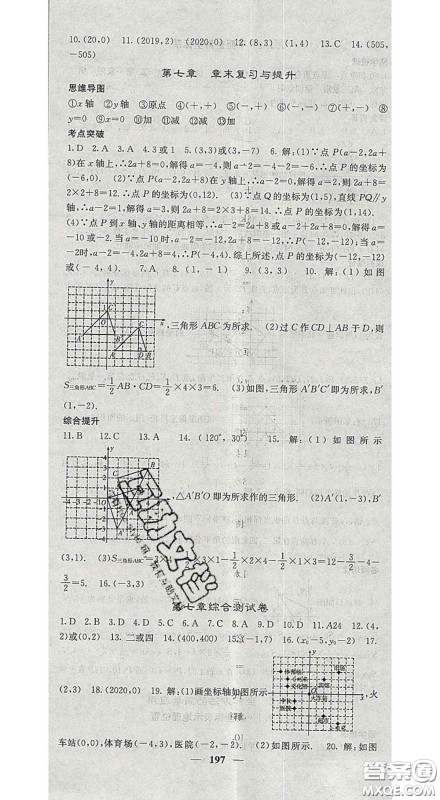 10.(20,0)　11.(2019,2)　(2020,0)　12.(8,3)　(1,4)　13.C　14.(505,
-505)
第七章　章末复习与提升
思维导图
①x轴　②y轴　③原点　④(+,+)　⑤(-,+)　⑥(-,-)　⑦(+,-)　⑧
y=0　⑨x=0　⑩加　⑪减　⑫减　⑬加
考点突破
1.D　2.A　3.A　4.3或1　5.(3,3)或(3,-7)　6.解:(1)∵点P(a-2,2a+
8)在x轴上,∴2a+8=0,解得a=-4,则a-2=-4-2=-6,∴点P的坐标为
(-6,0).　(2)∵点P(a-2,2a+8)在y轴上,∴a-2=0,解得a=2,则2a+
8=2×2+8=12,∴点P的坐标为(0,12).　(3)∵点Q的坐标为(1,5),直线PQ∥y
轴,∴a-2=1,解得a=3,则2a+8=2×3+8=14,∴点P的坐标为(1,14).
(4)∵点P到x轴、y轴的距离相等,∴a-2=2a+8或a-2+2a+8=0,解得a=
-10或-2.当a=-10时,a-2=-12,2a+8=-12,∴P(-12,-12);当a=
-2时,a-2=-4,2a+8=4,∴P(-4,4).综上所述,点P的坐标为(-12,-12)
或(-4,4).　7.A　8.(1,-1)　9.(3,3)　10.解:(1)如图
,三角形ABC为所求.　(2)过C作CD⊥AB于D,则
S三角形ABC=1/2AB·CD=1/2×4×3=6.　(3)如图,三角形A'B'C'即为所求,B'
(1,-2).
综合提升
11.B　12.C　13.A　14.(120°,30°)　15.解:(1)如图所示
,△A'B'O即为所求作的三角形.　(2)A'(1,-3),B'
(3,1).　(3)S三角形A'B'O
16.(-3,3)
第七章综合测试卷
1.D　2.B　3.D　4.A　5.D　6.C　7.B　8.D　9.D　10.D　11.A24　12.(4,
2)或(0,2)　13.二或四　14.(400,400)
17.
(2,3)　18.(2020,0)　19.解:(1)画坐标轴如图所示
,火
车站(0,0),体育场(-4,3),医院(-2,-2).　(2)如图所示　20.解:(1)如图
197
答案圈
MXQE.COM